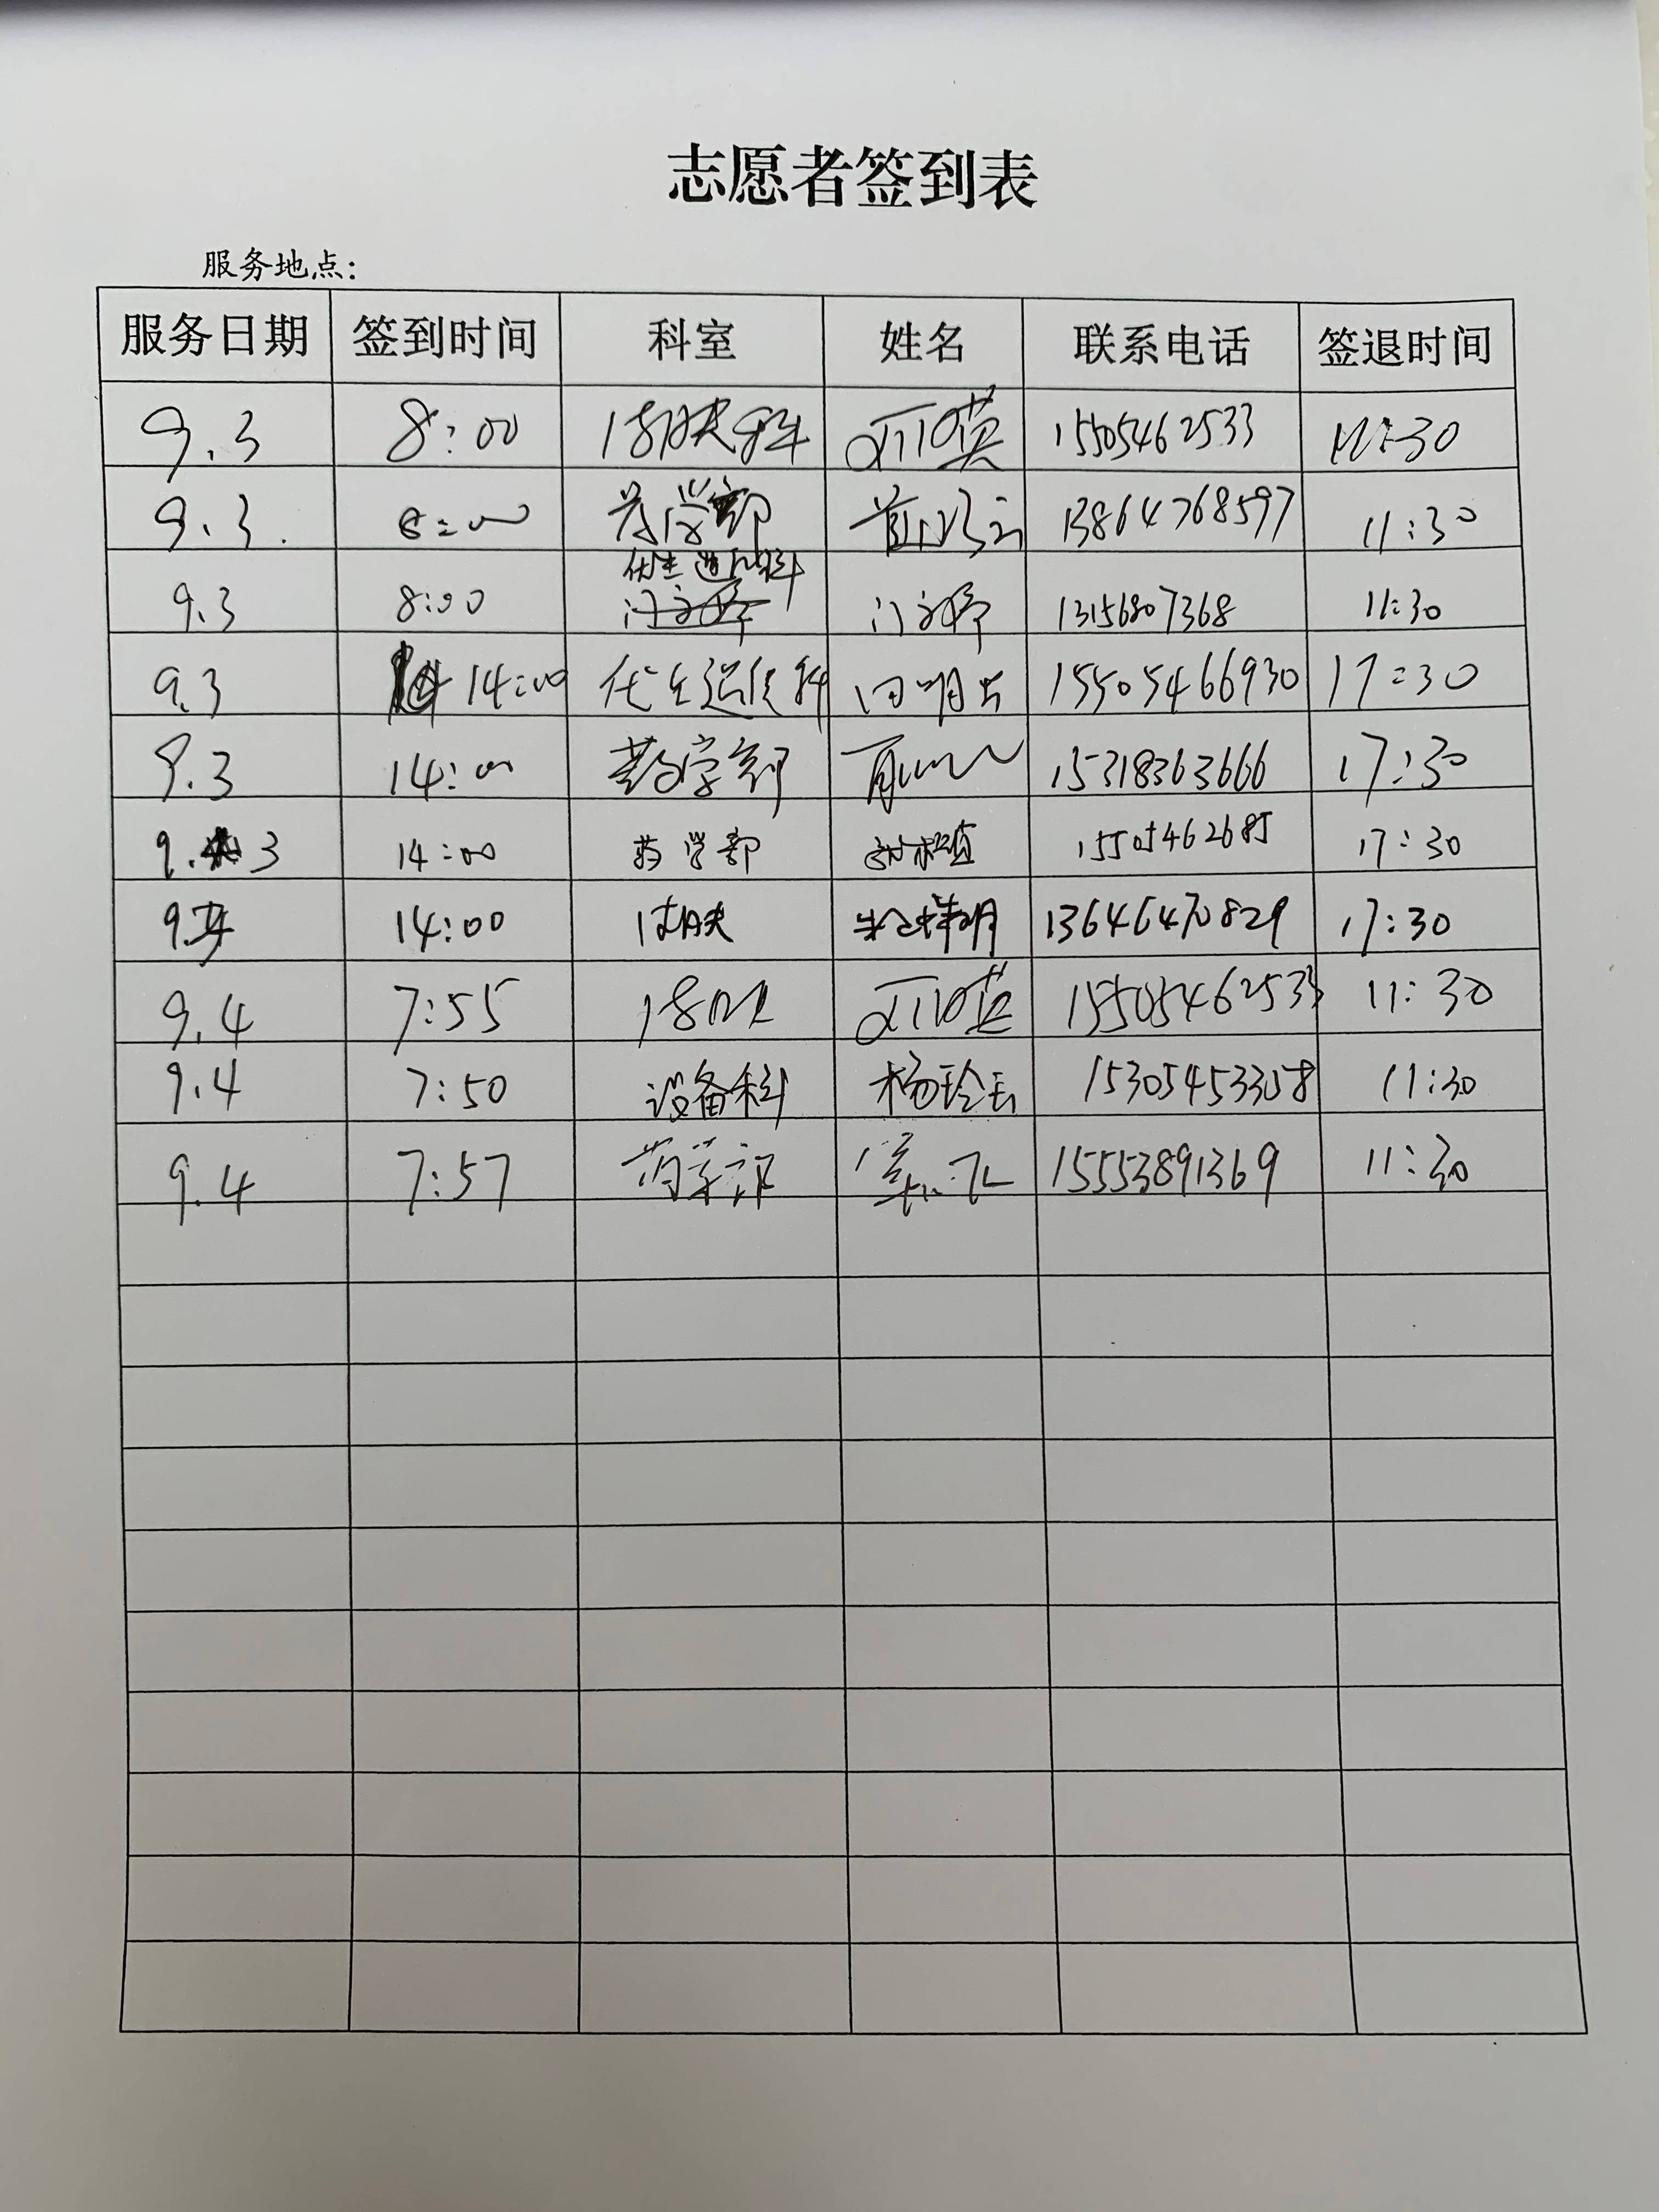 志愿者签到表
服务地点:
服务日期 签到时间 科室 姓名 联系电话 签退时间
9.3 8:00 健康科 15505462533 11:30
9.3. 8:00 药学部 13864768597 11:30
优生遗传科
9.3 8:00 门文婷 门文婷 13156807368 11:30
9.3 14:00 优生遗传科 15505466930 17:30
9.3 14:00 药学部 15318363666 17:30
9.3 14:00 药学部 15505462685 17:30
9.3 14:00 13646470829 17:30
9.4 7:55 15505462533 11:30
9.4 7:50 设备科 杨玲玉 15305453358 11:30
9.4 7:57 药学部 15553891369 11:30